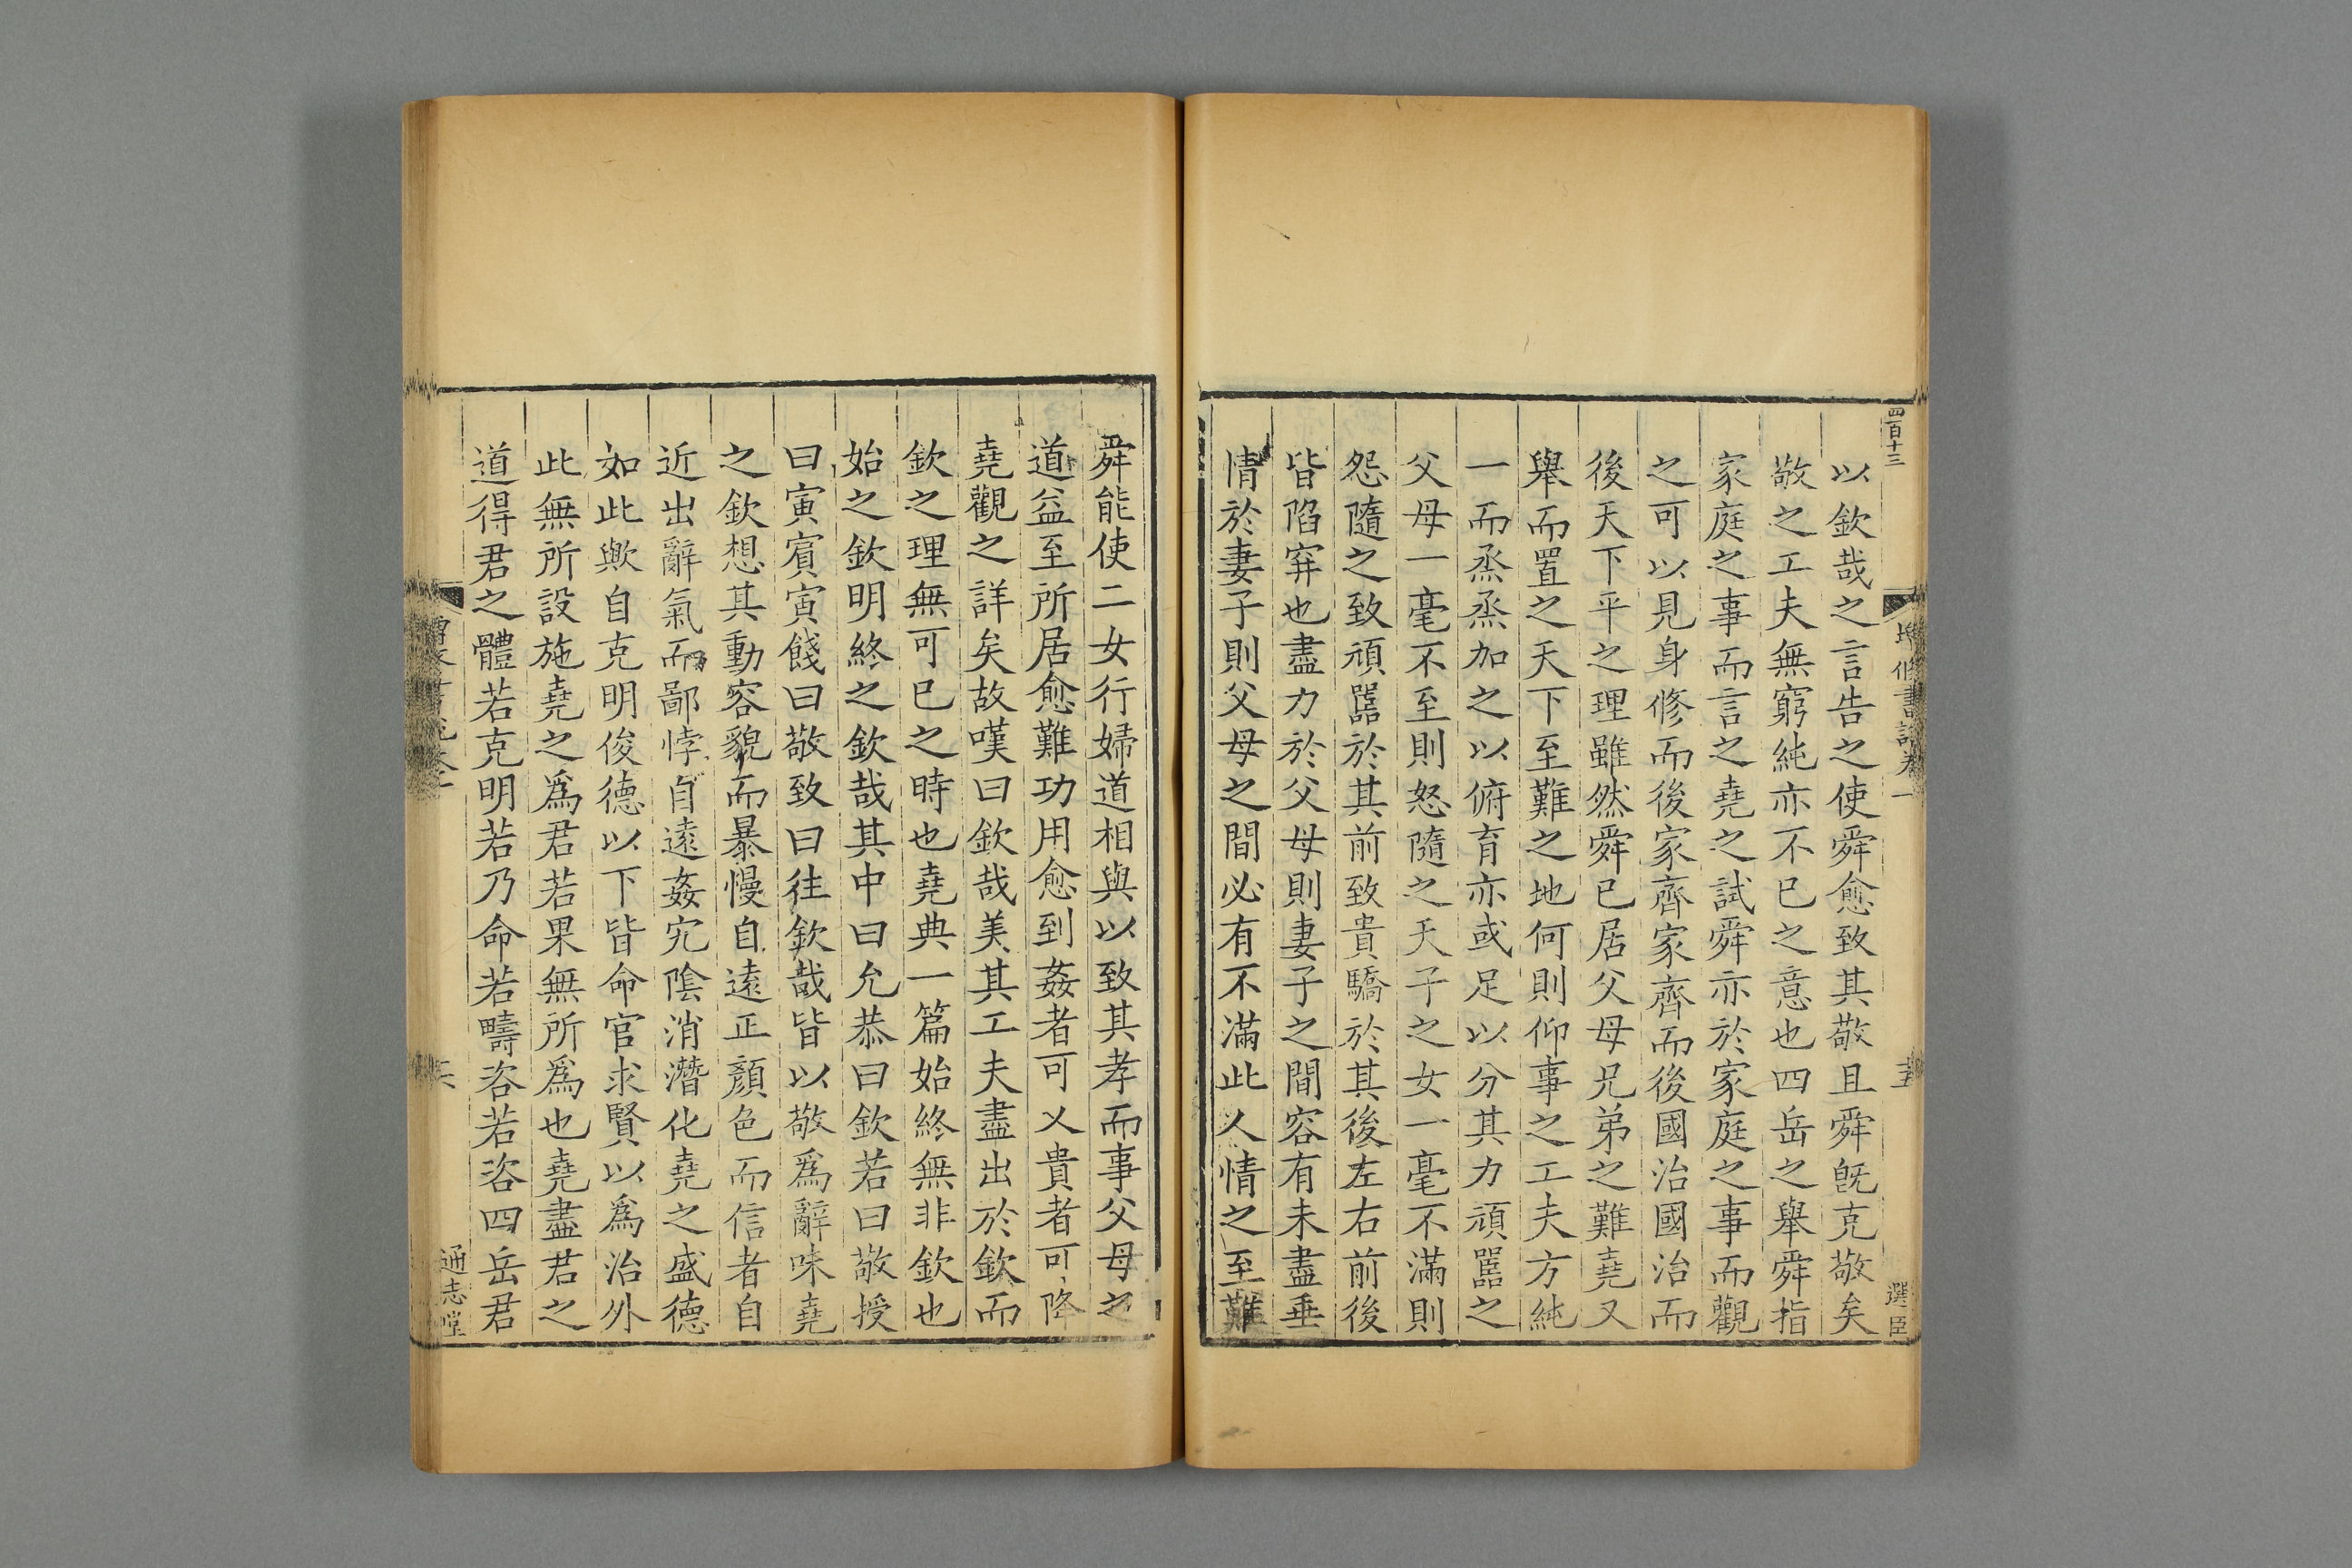 四百十三
增修書說卷一
十五
選臣
以欽哉之言告之使舜愈致其敬且舜旣克敬矣
敬之工夫無窮純亦不已之意也四岳之舉舜指
家庭之事而言之堯之試舜亦於家庭之事而觀
之可以見身修而後家齊家齊而後國治國治而
後天下平之理雖然舜已居父母兄弟之難堯又
舉而置之天下至難之地何則仰事之工夫方純
一而烝烝加之以俯育亦或足以分其力頑嚚之
父母一毫不至則怒隨之天子之女一毫不滿則
怨隨之致頑嚚於其前致貴驕於其後左右前後
皆陷穽也盡力於父母則妻子之間容有未盡垂
情於妻子則父母之間必有不滿此人情之至難
舜能使二女行婦道相與以致其孝而事父母之
道益至所居愈難功用愈到姦者可乂貴者可降
堯觀之詳矣故嘆曰欽哉美其工夫盡出於欽而
欽之理無可已之時也堯典一篇始終無非欽也
始之欽明終之欽哉其中曰允恭曰欽若曰敬授
曰寅賓寅餞曰敬致曰往欽哉皆以敬爲辭味堯
之欽想其動容貌而暴慢自遠正顏色而信者自
近出辭氣而鄙悖自遠姦宄陰消潛化堯之盛德
如此歟自克明俊德以下皆命官求賢以爲治外
此無所設施堯之爲君若果無所爲也堯盡君之
道得君之體若克明若乃命若疇咨若咨四岳君
通志堂